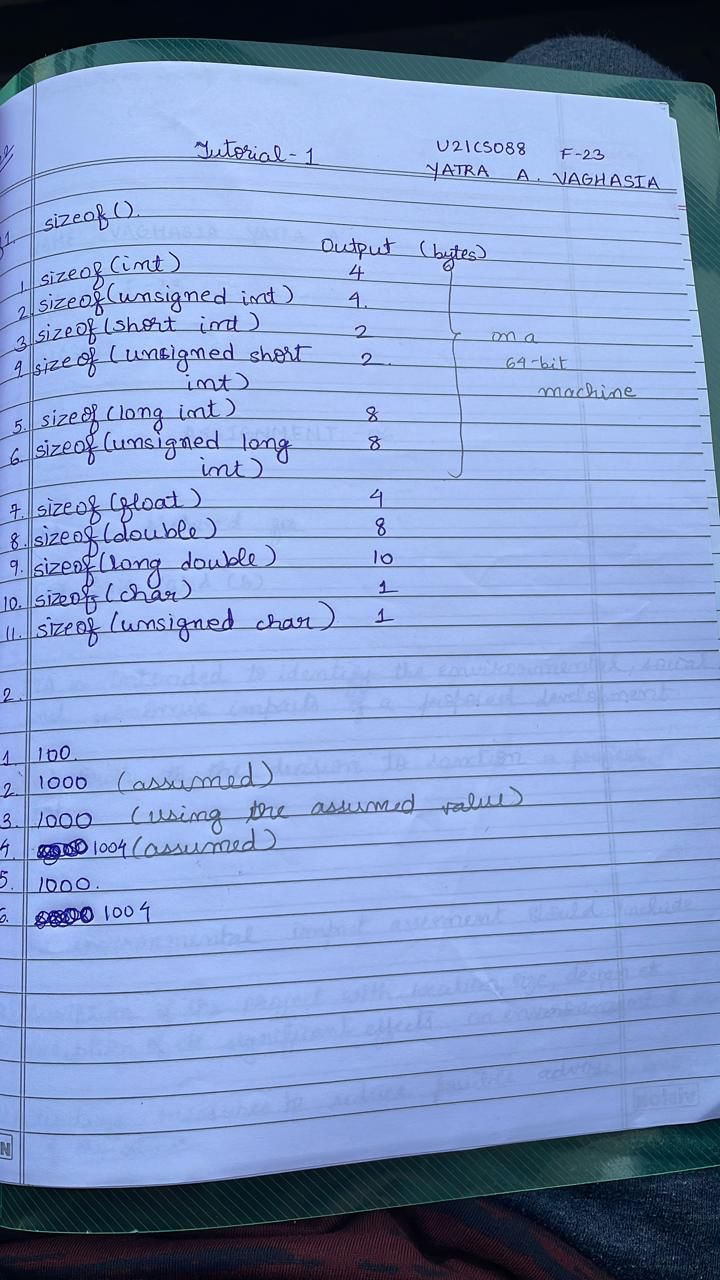 Tutorial - 1
U21CS088 F-23
YATRA A. VAGHASIA
1. sizeof().
Output (bytes)
1. sizeof(int) 4
2. sizeof(unsigned int) 4.
3. sizeof(short int) 2
4. sizeof(unsigned short 2
int)
on a
64-bit
machine
5. sizeof(long int) 8
6. sizeof(unsigned long 8
int)
7. sizeof(float) 4
8. sizeof(double) 8
9. sizeof(long double) 10
10. sizeof(char) 1
11. sizeof(unsigned char) 1
2.
1. 100.
2. 1000 (assumed)
3. 1000 (using the assumed value)
4. 1004 (assumed)
5. 1000.
6. 1004